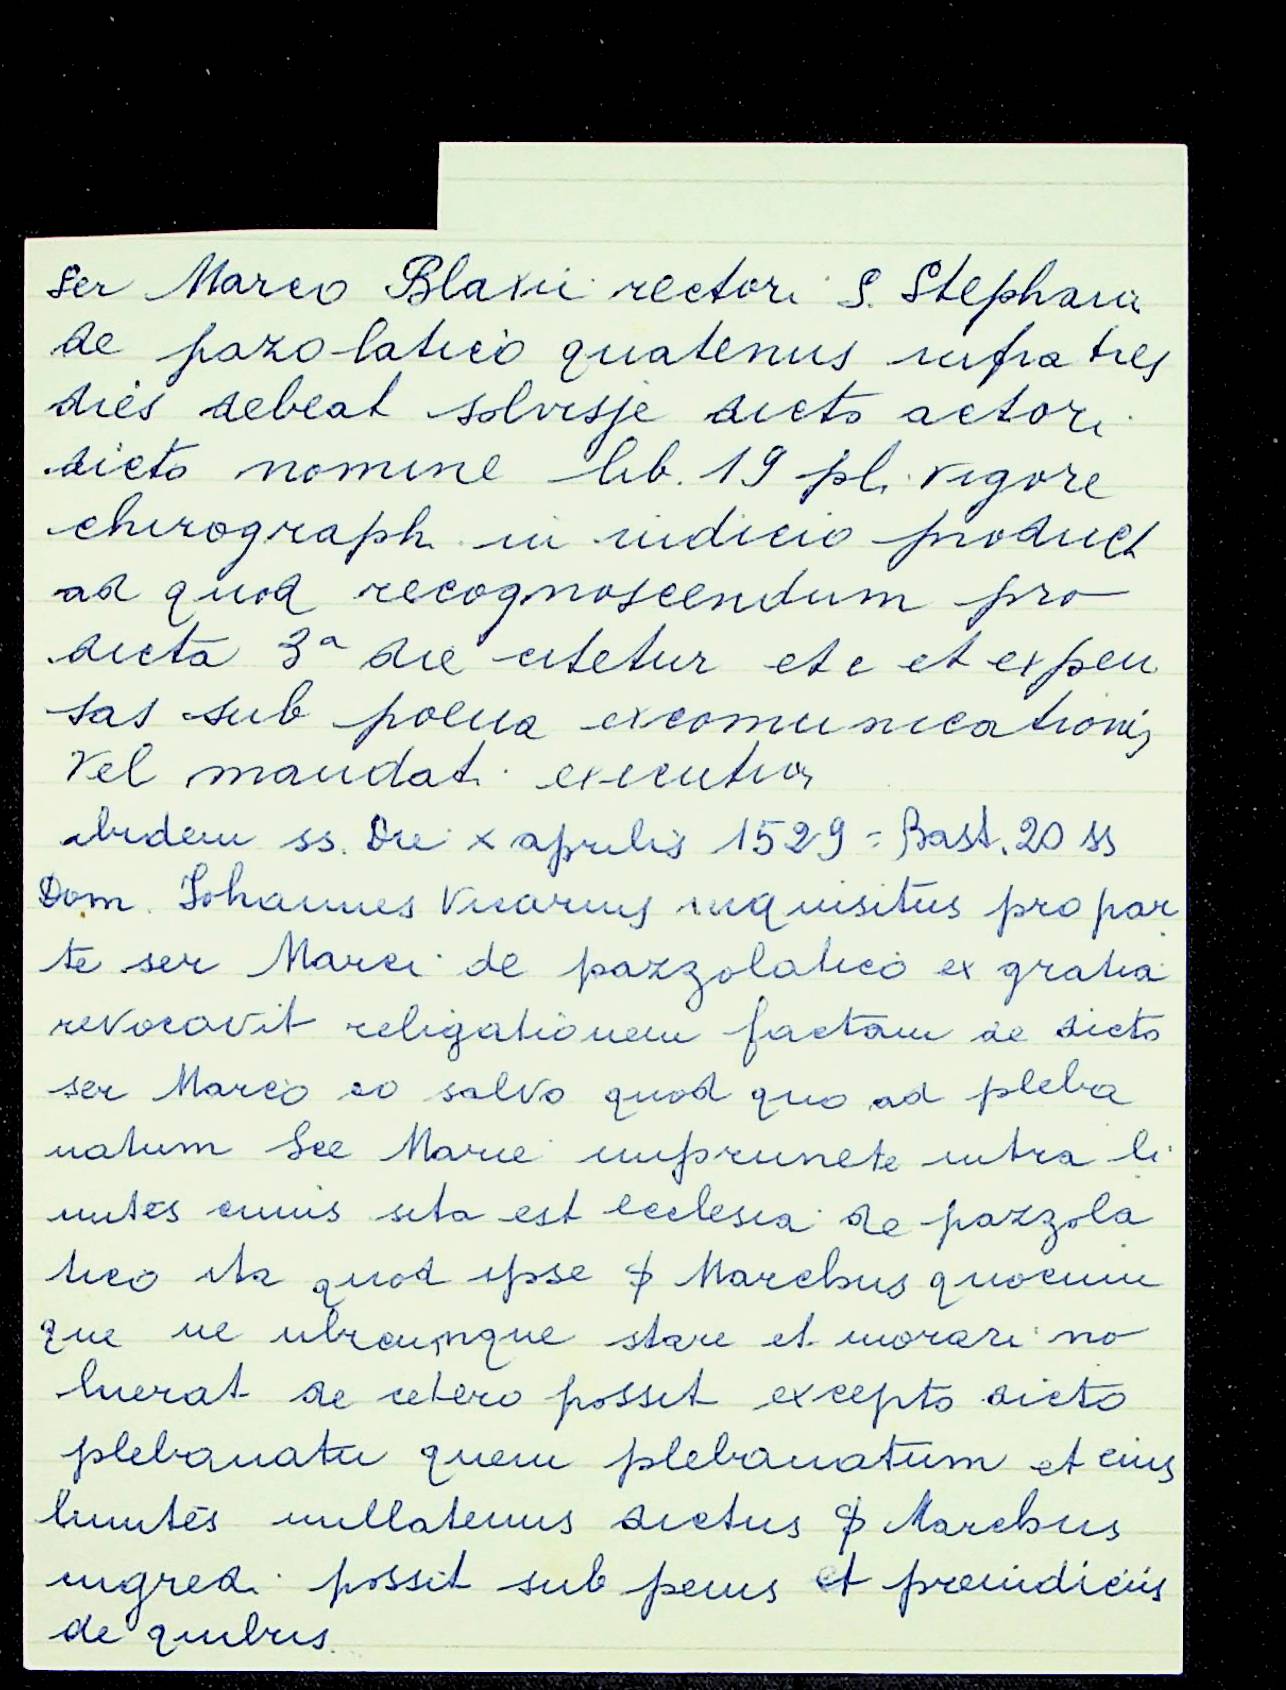 ser Marco Blaxii rectori S. Stephani
de pazolatico quatenus infra tres
dies debeat solvisse dicto actori
dicto nomine lib. 19 pl. vigore
chirograph. in iudicio product
ad quod recognoscendum pro
dicta 3ª die citetur etc et expen
sas sub poena excomunicationis
vel mandati executivi
ibidem ss. Die x aprilis 1529 = Bast. 20 ss
Dom. Johannes Vicarius inquisitus pro par
te ser Marci de pazzolatico ex gratia
revocavit religationem factam de dicto
ser Marco eo salvo quod quo ad pleba
natum See Marie imprunete intra li
mites cuius sita est ecclesia de pazzola
tico ita quod ipse Marchus quocum
que ne ubicunque stare et morari no
luerat de cetero possit excepto dicto
plebanatu quem plebanatum et eius
limites nullatenus dictus Marchus
ingredi possit sub penis et preiudiciis
de quibus.